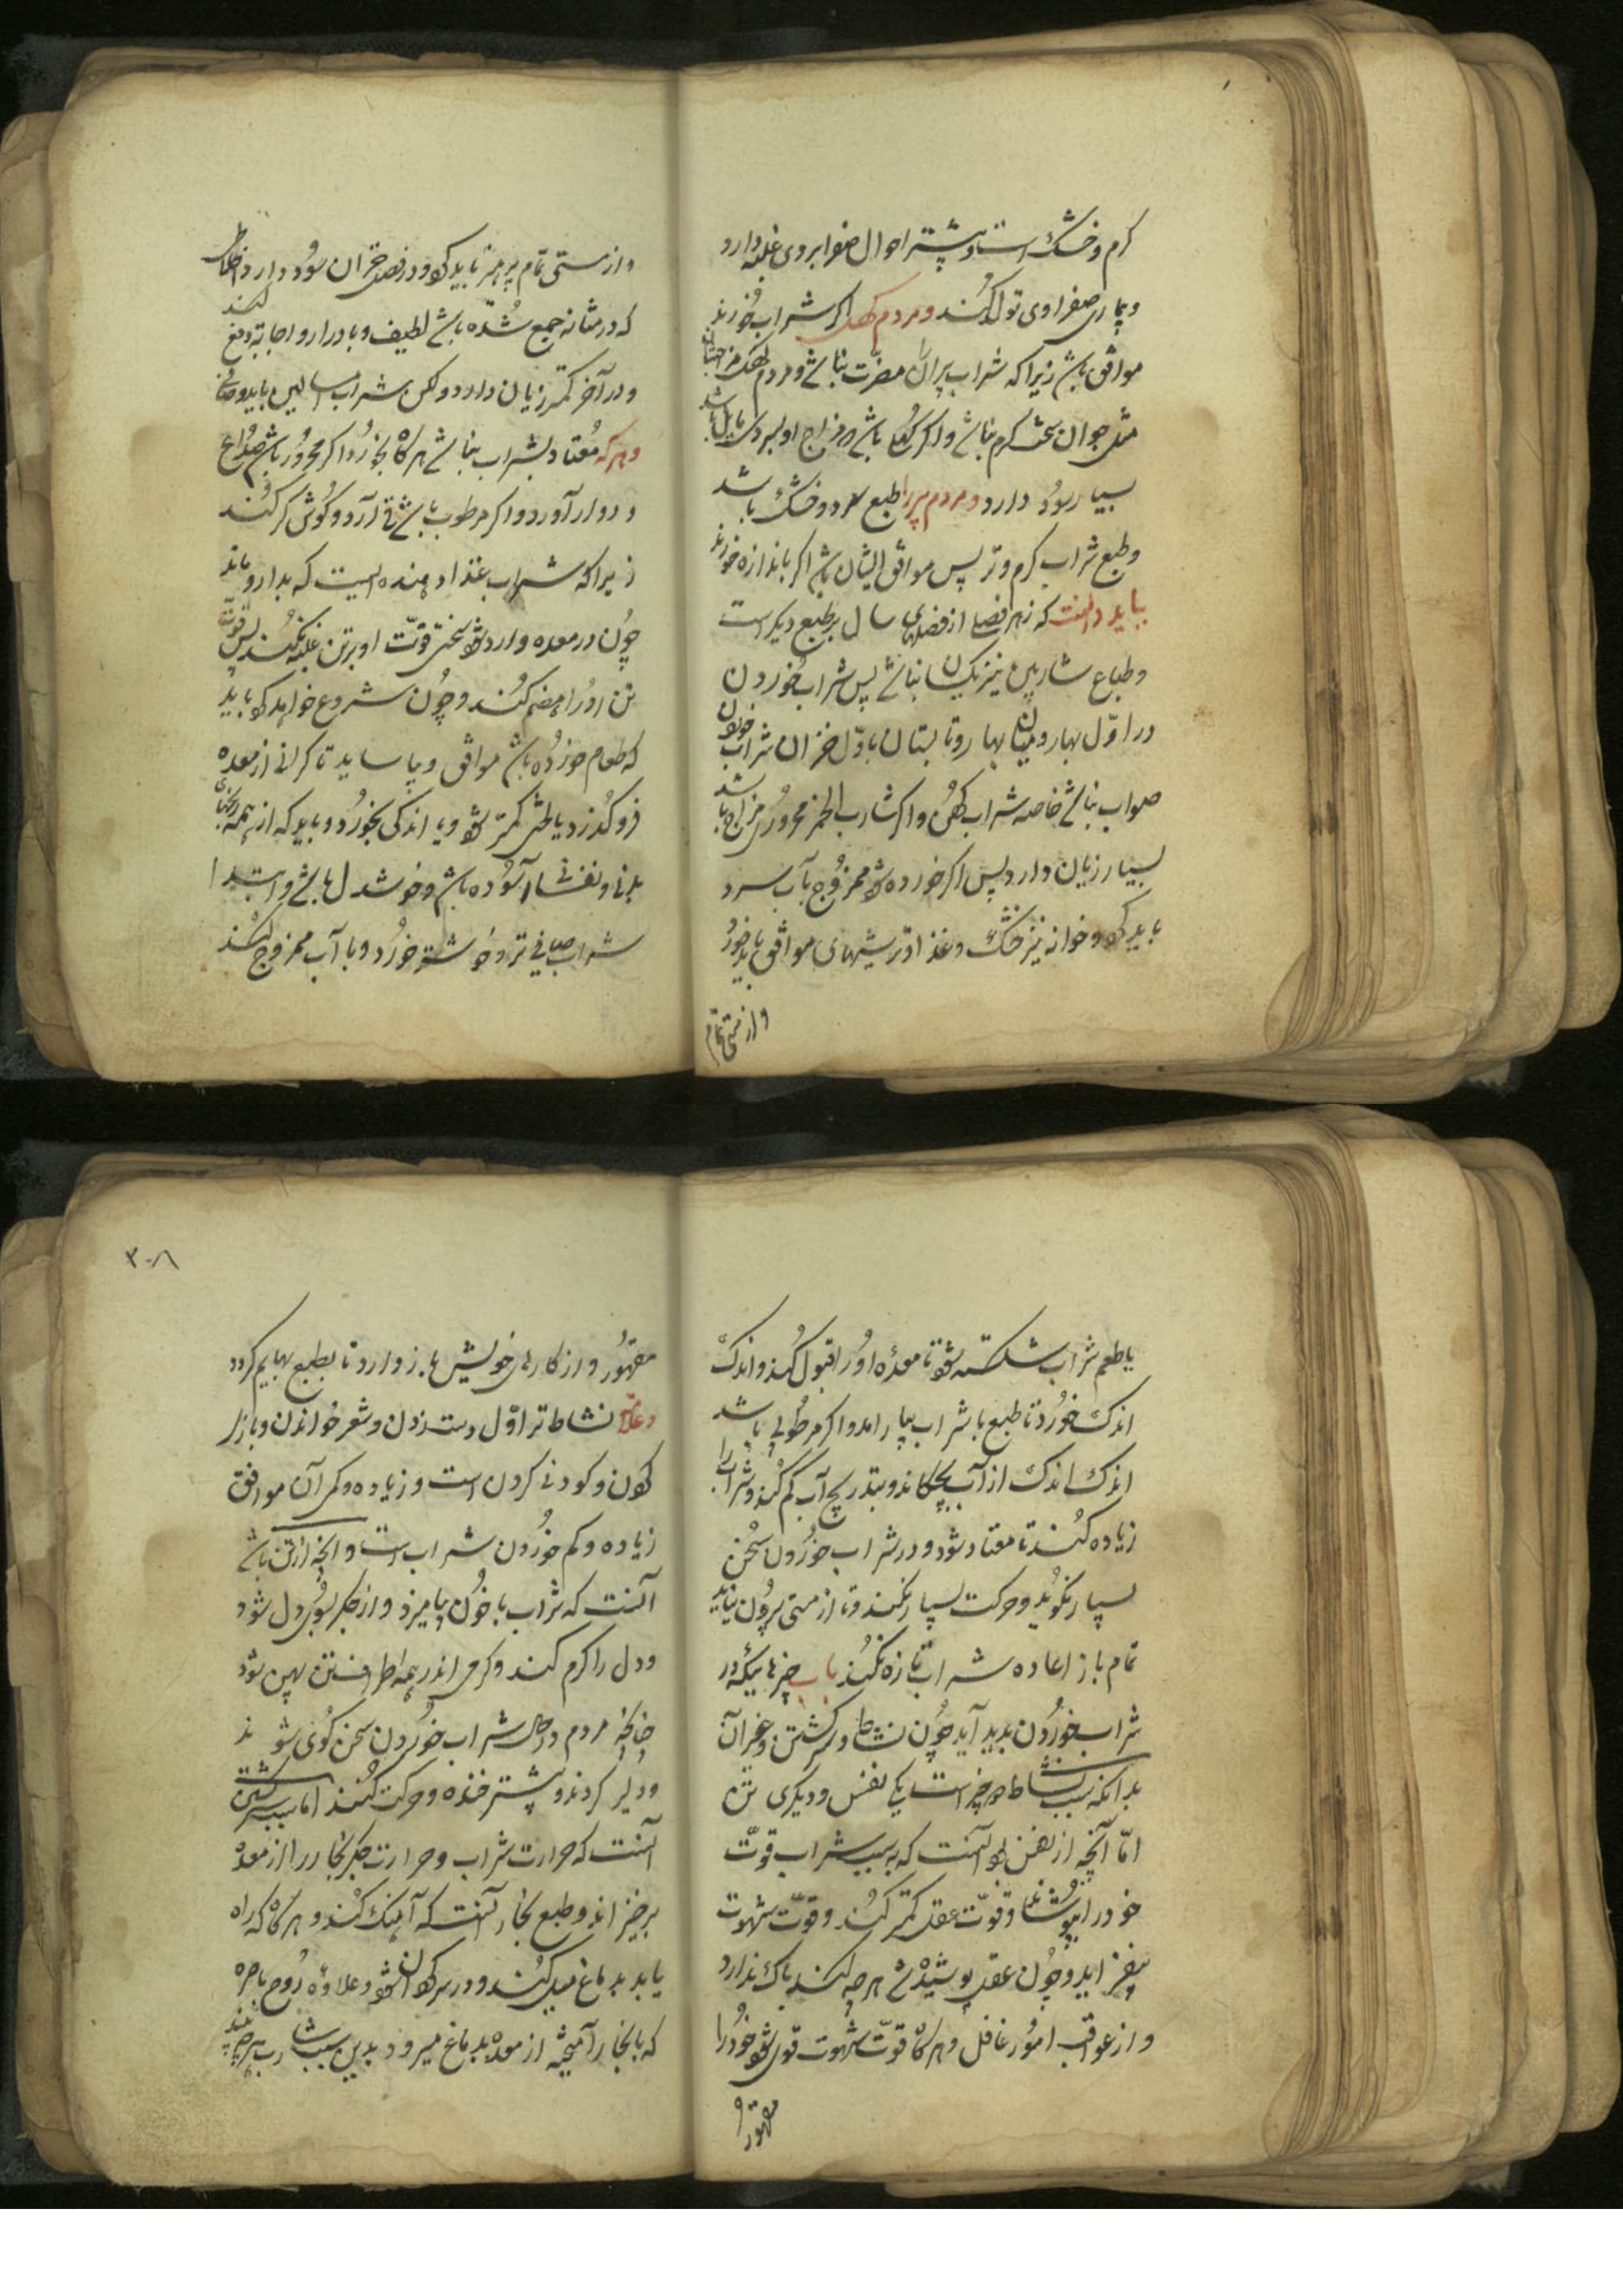 کرم و خشک است و بیشتر احوال صفرا بر وی غلبه دارد
و بیماری صفراوی تولد کند و مردم کهل اکر شراب خورند
موافق باشد زیرا که شراب پیرانرا مضرّت نباشد و مردم کهل مزاجشان
مثل جوان سخت کرم نباشد و اکر کهل باشد و مزاج او بسردی مایل باشد
بسیار سود دارد و مردم پیر را طبع سرد و خشک باشد
و طبع شراب کرم و تر پس موافق ایشان باشد اکر باندازه خورند
بباید دانست که هر فصلی از فصلهای سال بر طبع دیکر است
و طباع شاربین نیز یکسان نباشد پس شراب خوردن
در اوّل بهار و میان بهار و تابستان تا اوّل خزان شراب خوردن
صواب نباشد خاصه شراب کهن و اکر شارب الخمر محروری مزاج باشد
بسیار زیان دارد پس اکر خورده شود ممزوج بآب سرد
باید کرد و خوانه نیز خنک و غذا و ترشیهای موافق باید خورد
و از مستی تمام
و از مستی تمام پرهیز باید کرد و در فصل خزان سود دارد و اخلاط
که در مثانه جمع شده باشد لطیف و بادرار و اجابة دفع کند
و در آخر کمتر زیان دارد و لکن شراب باید و صافی
و هر که معتاد بشراب نباشد هر کاه بخورد اکر محرور باشد صداع
و دوار آورد و اکر مرطوب باشد قی آرد و کوش کر کند
زیرا که شراب غذا دهنده ایست که بدارو ماند
چون در معده وارد شود سختی قوّت او بر تن غلبه نکند پس قوّت
تن او را هضم کند و چون شروع خواهد کرد باید
که طعام خورده باشد موافق و بیاساید تا کرانی از معده
فرو کذرد یا لختی کمتر شود و یا اندکی بخورد و باید که از همه رنجهای
بدنی و نفسانی آسوده باشد و خوشدل باشد و ابتدا
شراب صافی تر و خوشتر خورد و با آب ممزوج کند
یا طعم شراب شکسته شود تا معده او را قبول کند و اندک
اندک خورد تا طبع با شراب بیارامد و اکر مرطوبی باشد
اندک اندک از آب بچکاند و بتدریج آب کم کند و شراب را
زیاده کند تا معتاد شود و در شراب خوردن سخن
بسیار نکوید و حرکت بسیار نکند و تا از مستی بیرون نیاید
تمام باز اعاده شراب تازه نکند باب چیزهائیکه در
شراب خوردن پدید آید چون نشاط و سر کشتن و غیر آن
بدانکه سبب نشاط دو چیز است یکی نفس و دیکری تن
امّا آنچه از نفس بود آنست که به سبب شراب قوّت
خود را بپوشاند و قوّت عقل کمتر کند و قوّت شهوت
بیفزاید و چون عقل پوشیده شد هر چه کند باک ندارد
و از عواقب امور غافل و هر کاه قوّت شهوت قوی شود خود را
مقهور و
۳۰۸
مقهور و از کارهای خویش باز دارد تا بطبع بهایم کردد
و علامة نشاط تر اوّل دست زدن و شعر خواندن و بازی
کردن و کودنی کردن است و زیاده و کم آن موافق
زیاده و کم خوردن شراب است و آنچه از تن باشد
آنست که شراب با خون بیامیزد و از جکر بسوی دل شود
و دل را کرم کند و کرمی اندر همه اطراف تن پهن شود
چنانچه مردم در حال شراب خوردن سخن کوی شوند
و دلیر کردند و بیشتر خنده و حرکت کنند امّا سبب سر کشتن
آنست که حرارت شراب و حرارت جکر بخار را از معده
برخیزاند و طبع بخار آنست که آهنک کند و هر کاه که راه
یابد بدماغ میل کند و در سر کردان شود و علاوه روح باصره
که با بخار آمیخته از معده بدماغ میرود بدین سبب شارب هر چه بیند